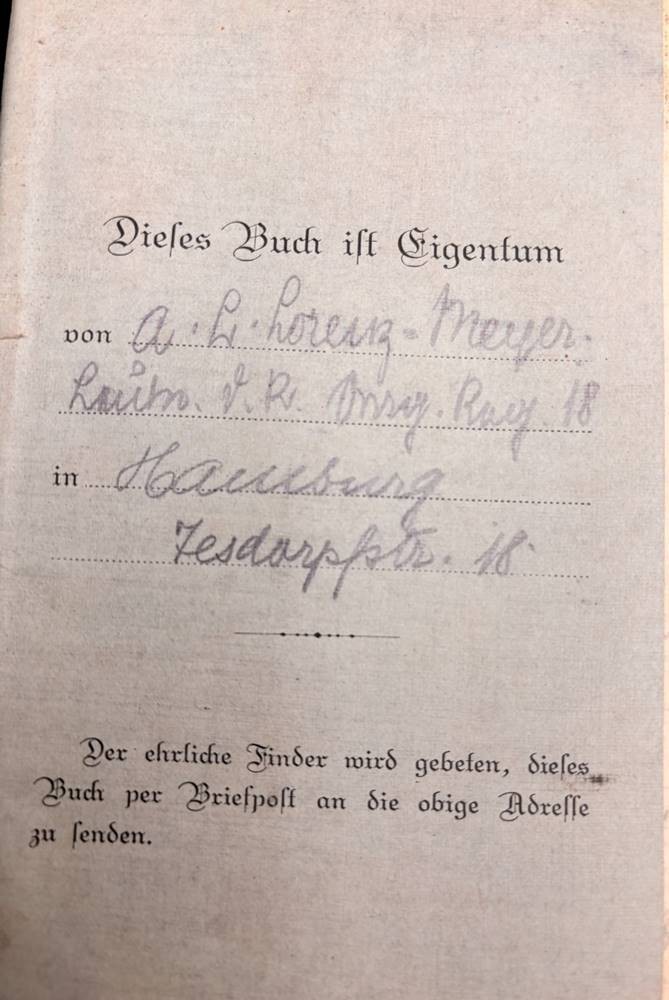 Dieses Buch ist Eigentum
von A. L. Lorenz-Meyer.
Leutn. d. R. Drag. Reg. 18
in Hamburg
Tesdorpfstr. 18
Der ehrliche Finder wird gebeten, dieses
Buch per Briefpost an die obige Adresse
zu senden.